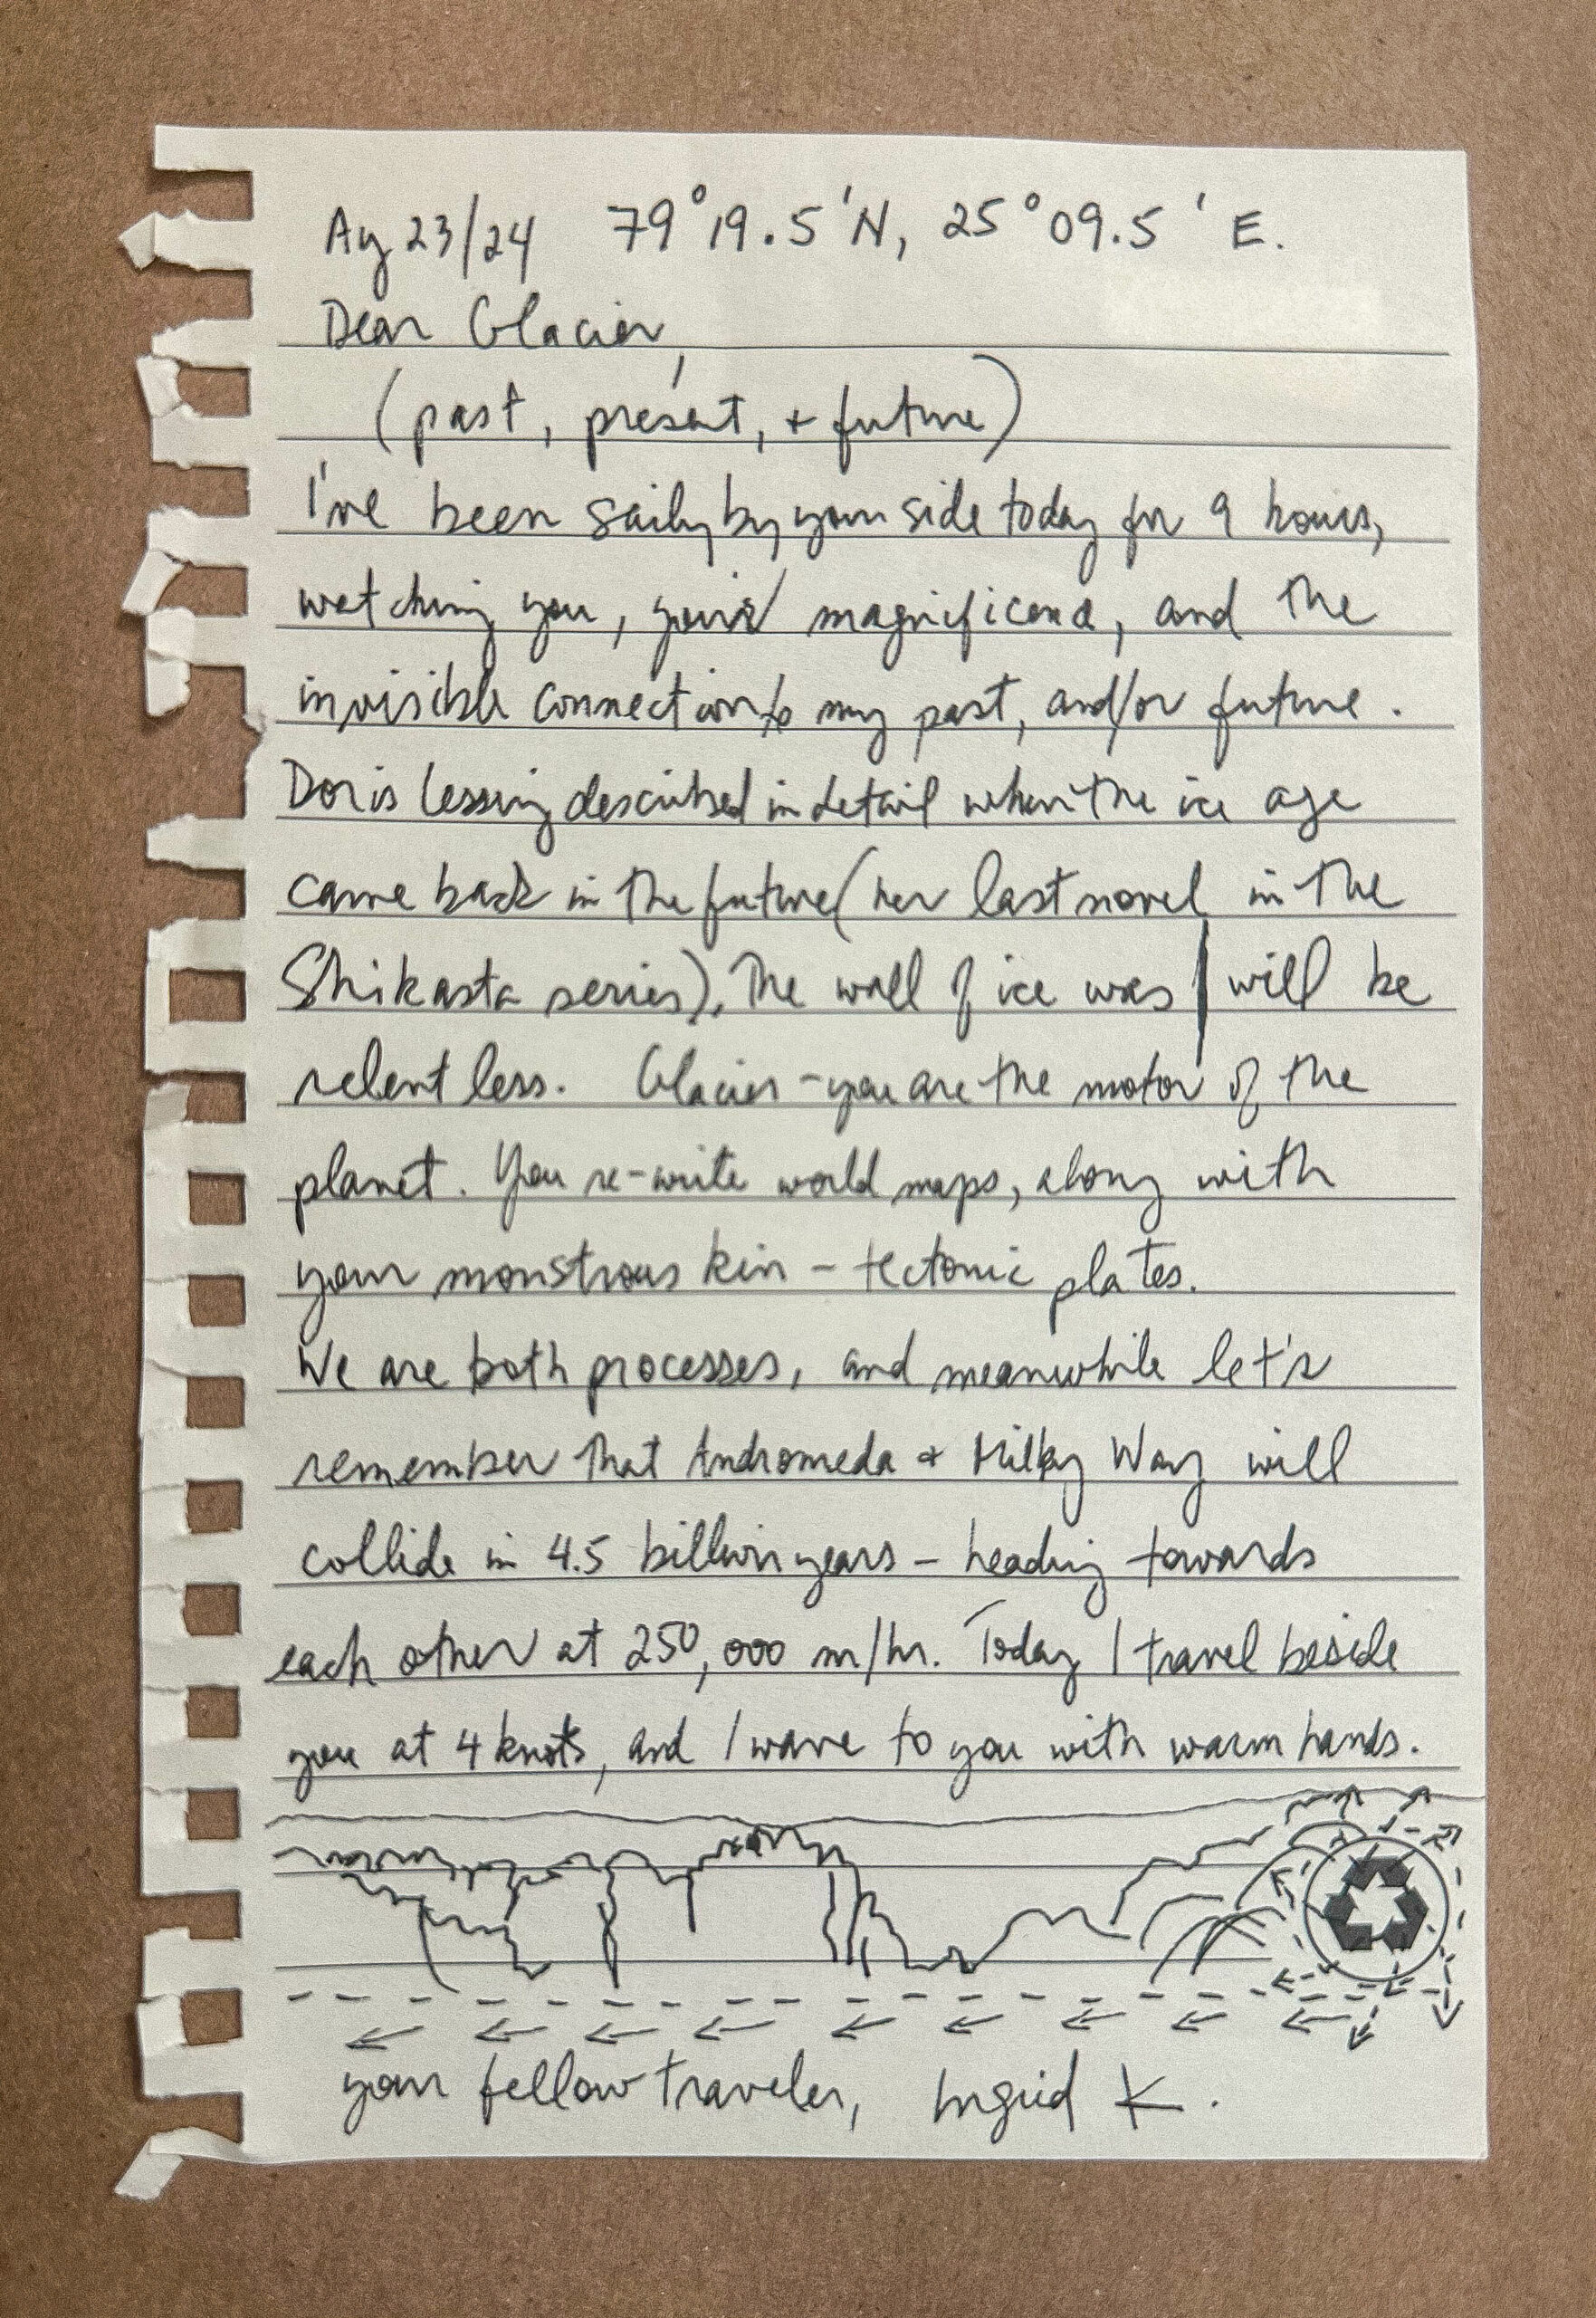 Ag 23/24 79°19.5'N, 25°09.5' E.
Dear Glacier,
(past, present, + future)
I've been sailing by your side today for 9 hours,
watching you, your magnificence, and the
invisible connection to my past, and/or future.
Doris Lessing described in detail when the ice age
came back in the future (her last novel in the
Shikasta series). The wall of ice was / will be
relentless. Glacier - you are the motor of the
planet. You re-write world maps, along with
your monstrous kin - tectonic plates.
We are both processes, and meanwhile let's
remember that Andromeda + Milky Way will
collide in 4.5 billion years - heading towards
each other at 250,000 m/hr. Today I travel beside
you at 4 knots, and I wave to you with warm hands.
your fellow traveler, Ingrid K.